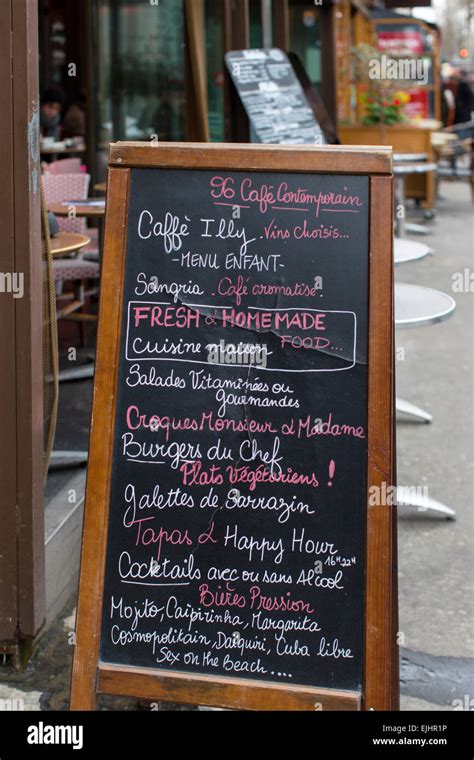 96 Café Contemporain
Caffè Illy. Vins Choisis...
-MENU ENFANT-
Sangria. Café aromatise.
FRESH & HOMEMADE
Cuisine maison FOOD...
Salades Vitaminées ou
gourmandes
Croques Monsieur & Madame
Burgers du Chef
Plats Végétariens !
galettes de Sarrazin
Tapas & Happy Hour
16H 22H
Cocktails avec ou sans Alcool
Bières Pression
Mojito, Caïpirinha, Margarita
Cosmopolitain, Daïquiri, Cuba libre
Sex on the Beach....
alamy
alamy stock photo
Image ID: EJHR1P
www.alamy.com